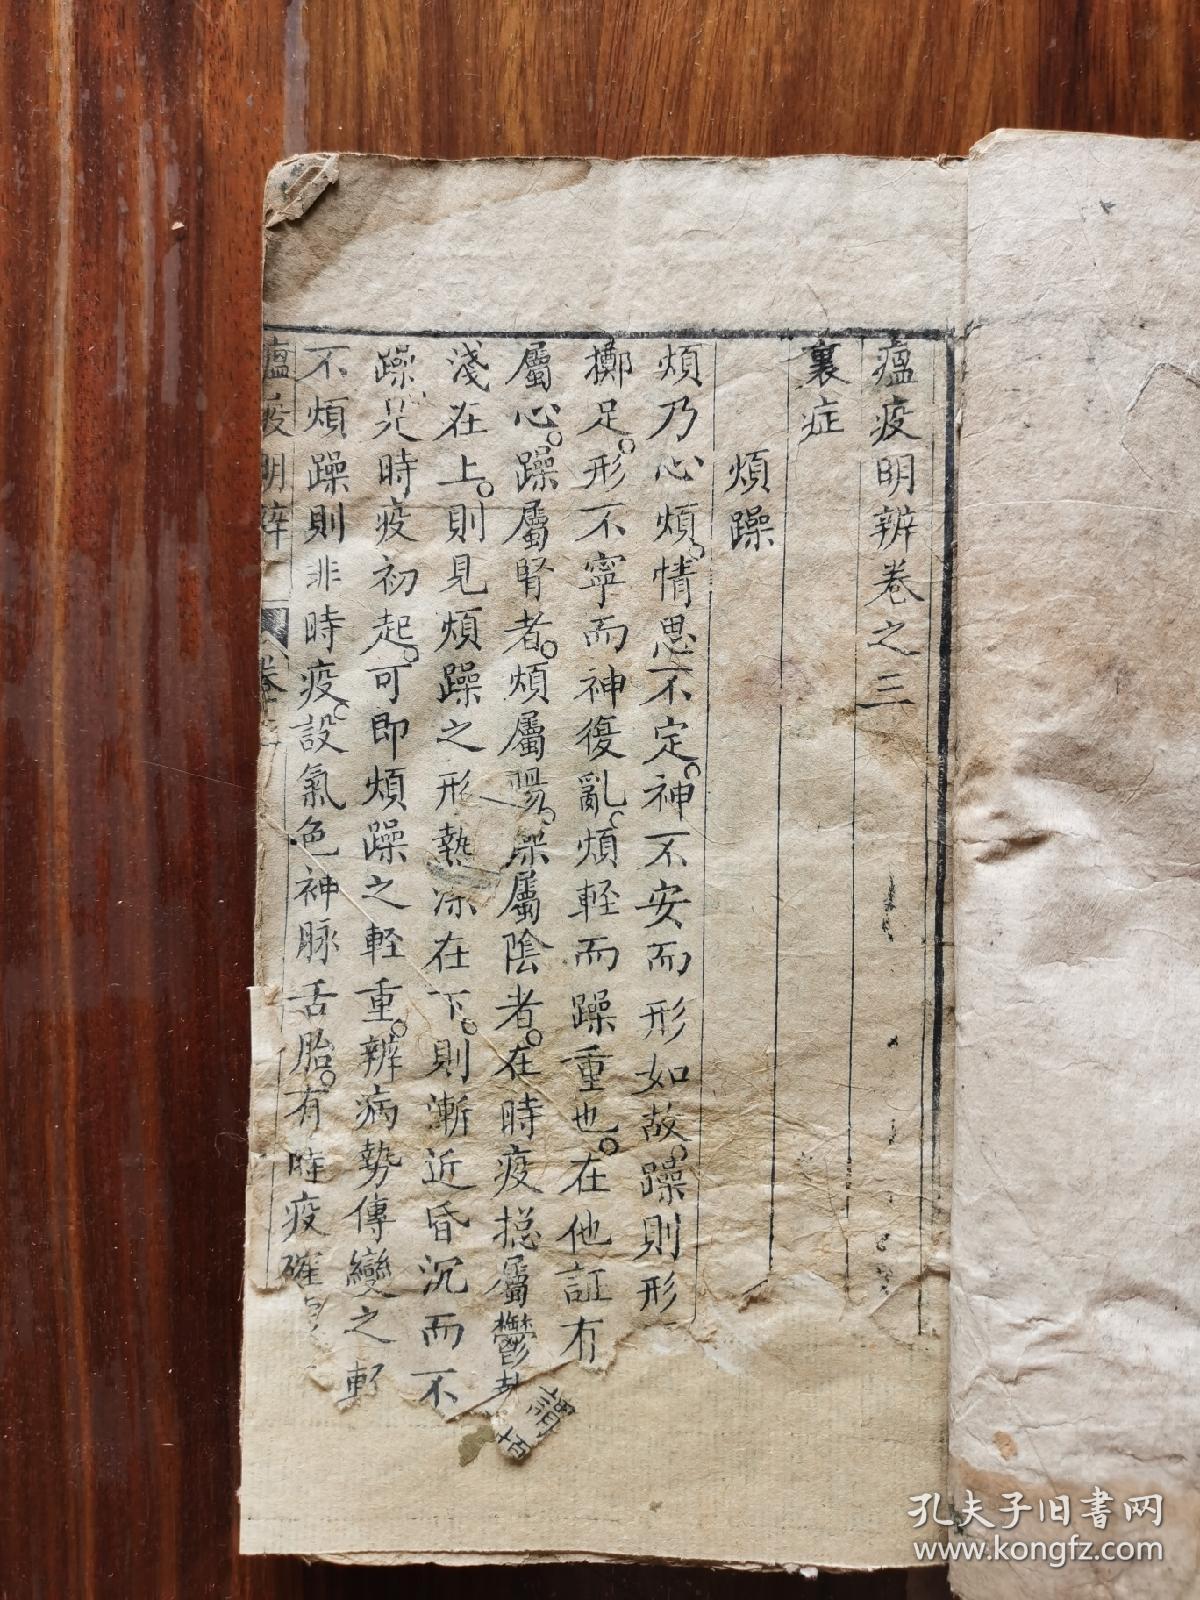 瘟疫明辨卷之三
裏症
煩躁
煩乃心煩。情思不定。神不安而形如故。躁則形
擲足。形不寧而神復亂。煩輕而躁重也。在他証有
屬心。躁屬腎者。煩屬陽。躁屬陰者。在時疫摠屬鬱
淺在上。則見煩躁之形熱深在下。則漸近昏沉而不
躁。凡時疫初起。可即煩躁之軽重。辨病勢傳變之軒
不煩躁則非時疫。設氣色神脉舌胎。有時疫確
瘟疫明辨 卷之三
謂
孔夫子旧书网
www.kongfz.com